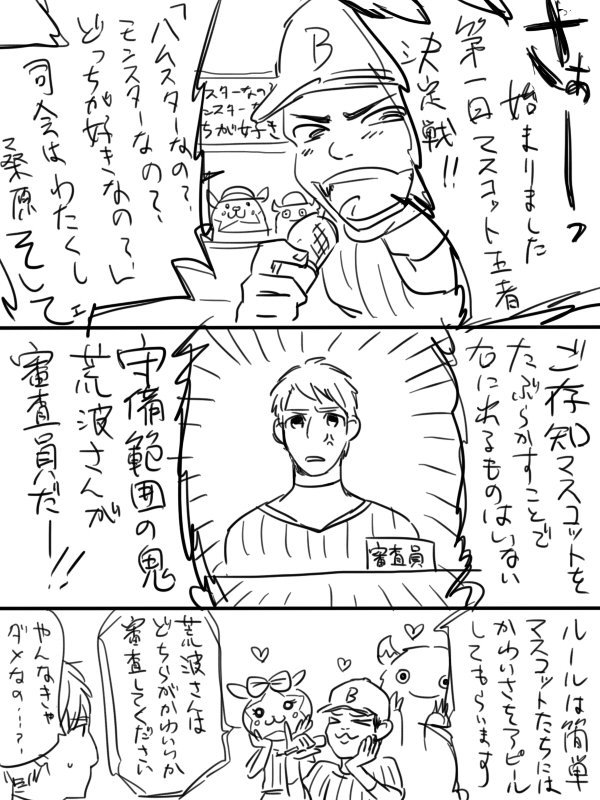 さぁーーっ
始まりました
第一回マスコット王者
決定戦!!
B
スターなの?
ンスターな
ちが好き
「ハムスターなの?
モンスターなの?
どっちが好きなの?」
司会はわたくし
桑原
そして
ご存知マスコットを
たぶらかすことで
右に出るものはいない
守備範囲の鬼
荒波さんが
審査員だー!!
審査員
ルールは簡単
マスコットたちには
かわいさをアピール
してもらいます
B
荒波さんは
どちらがかわいいか
審査してください
やんなきゃ
ダメなの…?